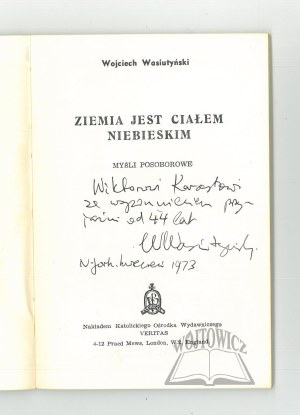 Wojciech Wasiutyński
ZIEMIA JEST CIAŁEM
NIEBIESKIM
MYŚLI POSOBOROWE
Wiktorowi
ze wspomnieniem przy-
jaźni od 44 lat
WWasiutyński
N. Jork. kwiecień 1973
Nakładem Katolickiego Ośrodka Wydawniczego
VERITAS
4-12 Praed Mews, London, W.2. England
WÓJTOWICZ